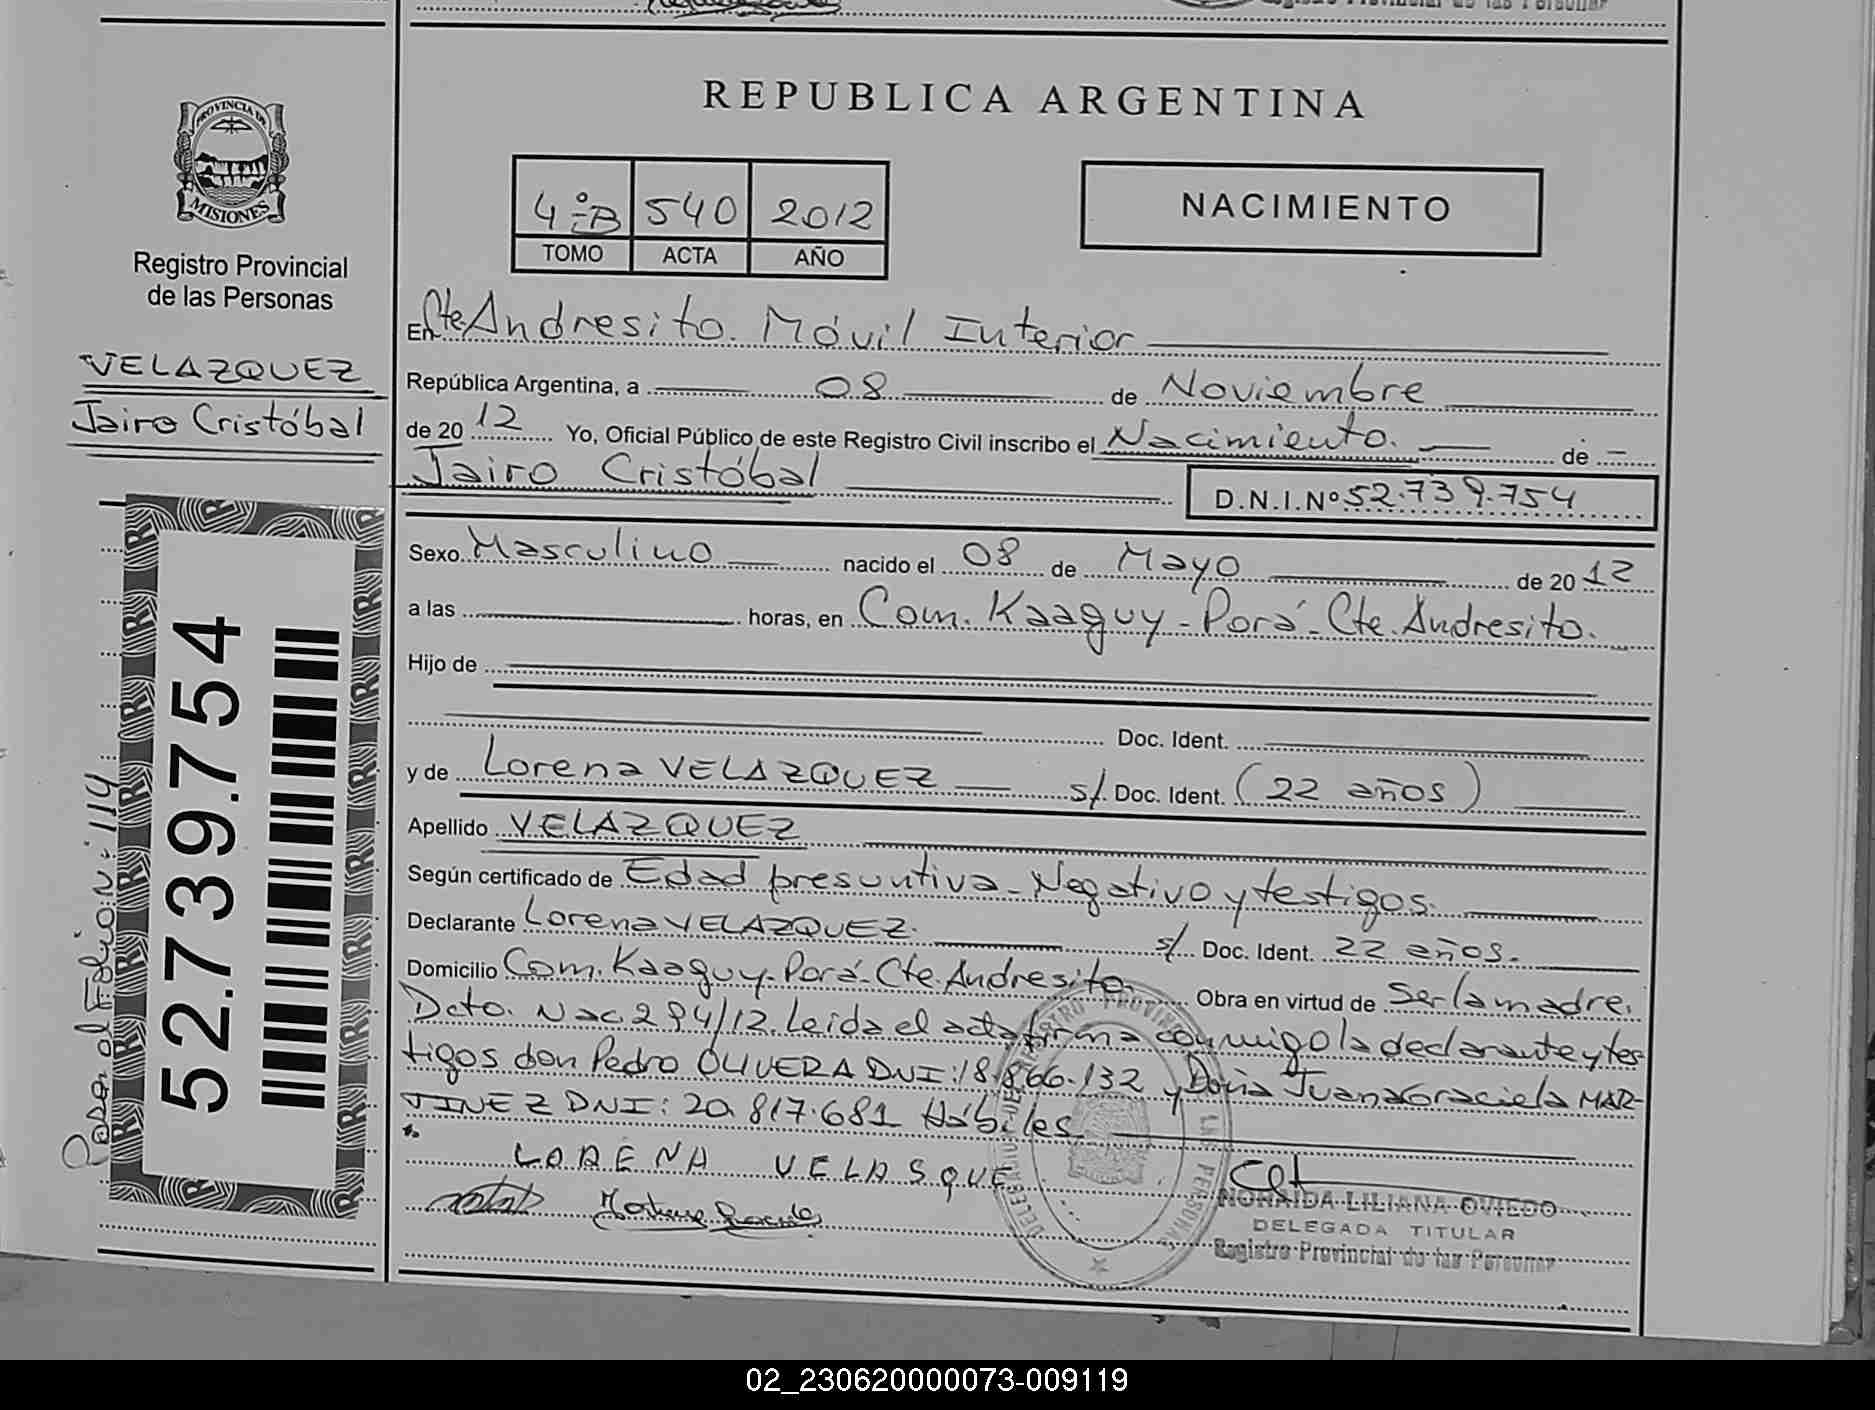 Registro Provincial de las Personas
PROVINCIA DE
MISIONES
Registro Provincial
de las Personas
VELAZQUEZ
Jairo Cristóbal
52.739.754
Pasa al Folio Nº: 114
REPUBLICA ARGENTINA
4º B 540 2012
TOMO ACTA AÑO
NACIMIENTO
En Cte. Andresito. Móvil Interior
República Argentina, a 08 de Noviembre
de 20 12 Yo, Oficial Público de este Registro Civil inscribo el Nacimiento. de
Jairo Cristóbal D.N.I.Nº 52.739.754
Sexo Masculino nacido el 08 de Mayo de 20 12
a las horas, en Com. Kaaguy-Porá-Cte. Andresito.
Hijo de
Doc. Ident.
y de Lorena VELAZQUEZ s/. Doc. Ident. (22 años)
Apellido VELAZQUEZ
Según certificado de Edad presuntiva-Negativo y testigos.
Declarante Lorena VELAZQUEZ. s/. Doc. Ident. 22 años.
Domicilio Com. Kaaguy-Porá-Cte. Andresito. Obra en virtud de Ser la madre.
Dcto. Nac 294/12. Leida el acta firma conmigo la declarante y tes
tigos don Pedro OLIVERA DNI: 18.866.132 y Doña Juana Graciela MAR-
TINEZ DNI: 20.817.681 Hábiles
LORENA VELASQUE
NORAIDA LILIANA OVIEDO
DELEGADA TITULAR
Registro Provincial de las Personas
02_230620000073-009119